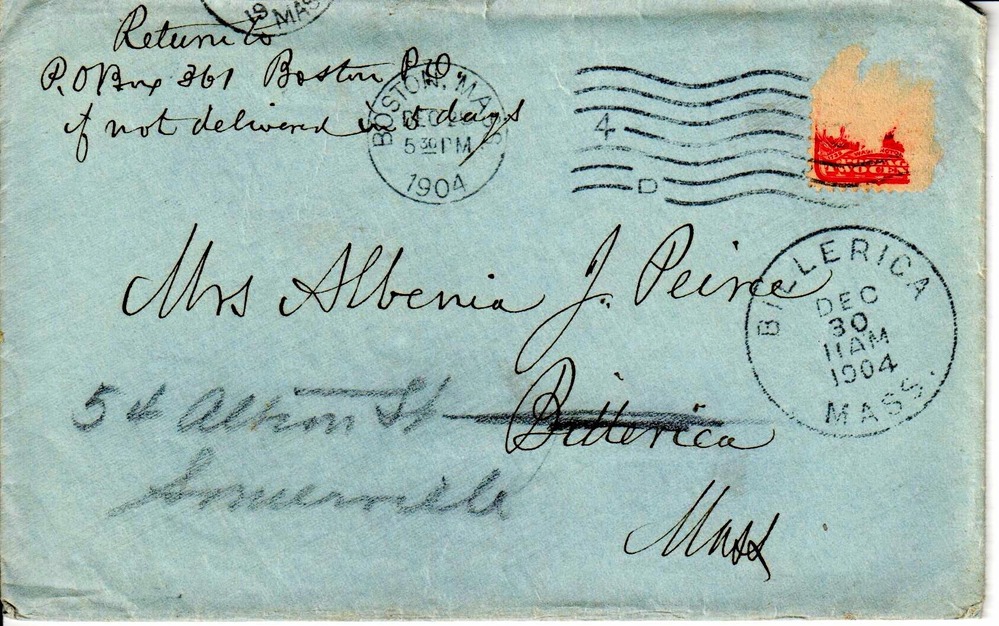 19
MASS
Return to
P.O Box 361 Boston P.O.
if not delivered in 5 days
BOSTON, MASS
DEC 2
5 30 PM
1904
4
D
TWO CE
Mrs Albenia J. Peirce
BILLERICA
DEC
30
11 AM
1904
MASS.
54 Albion St
Billerica
Somerville
Mass